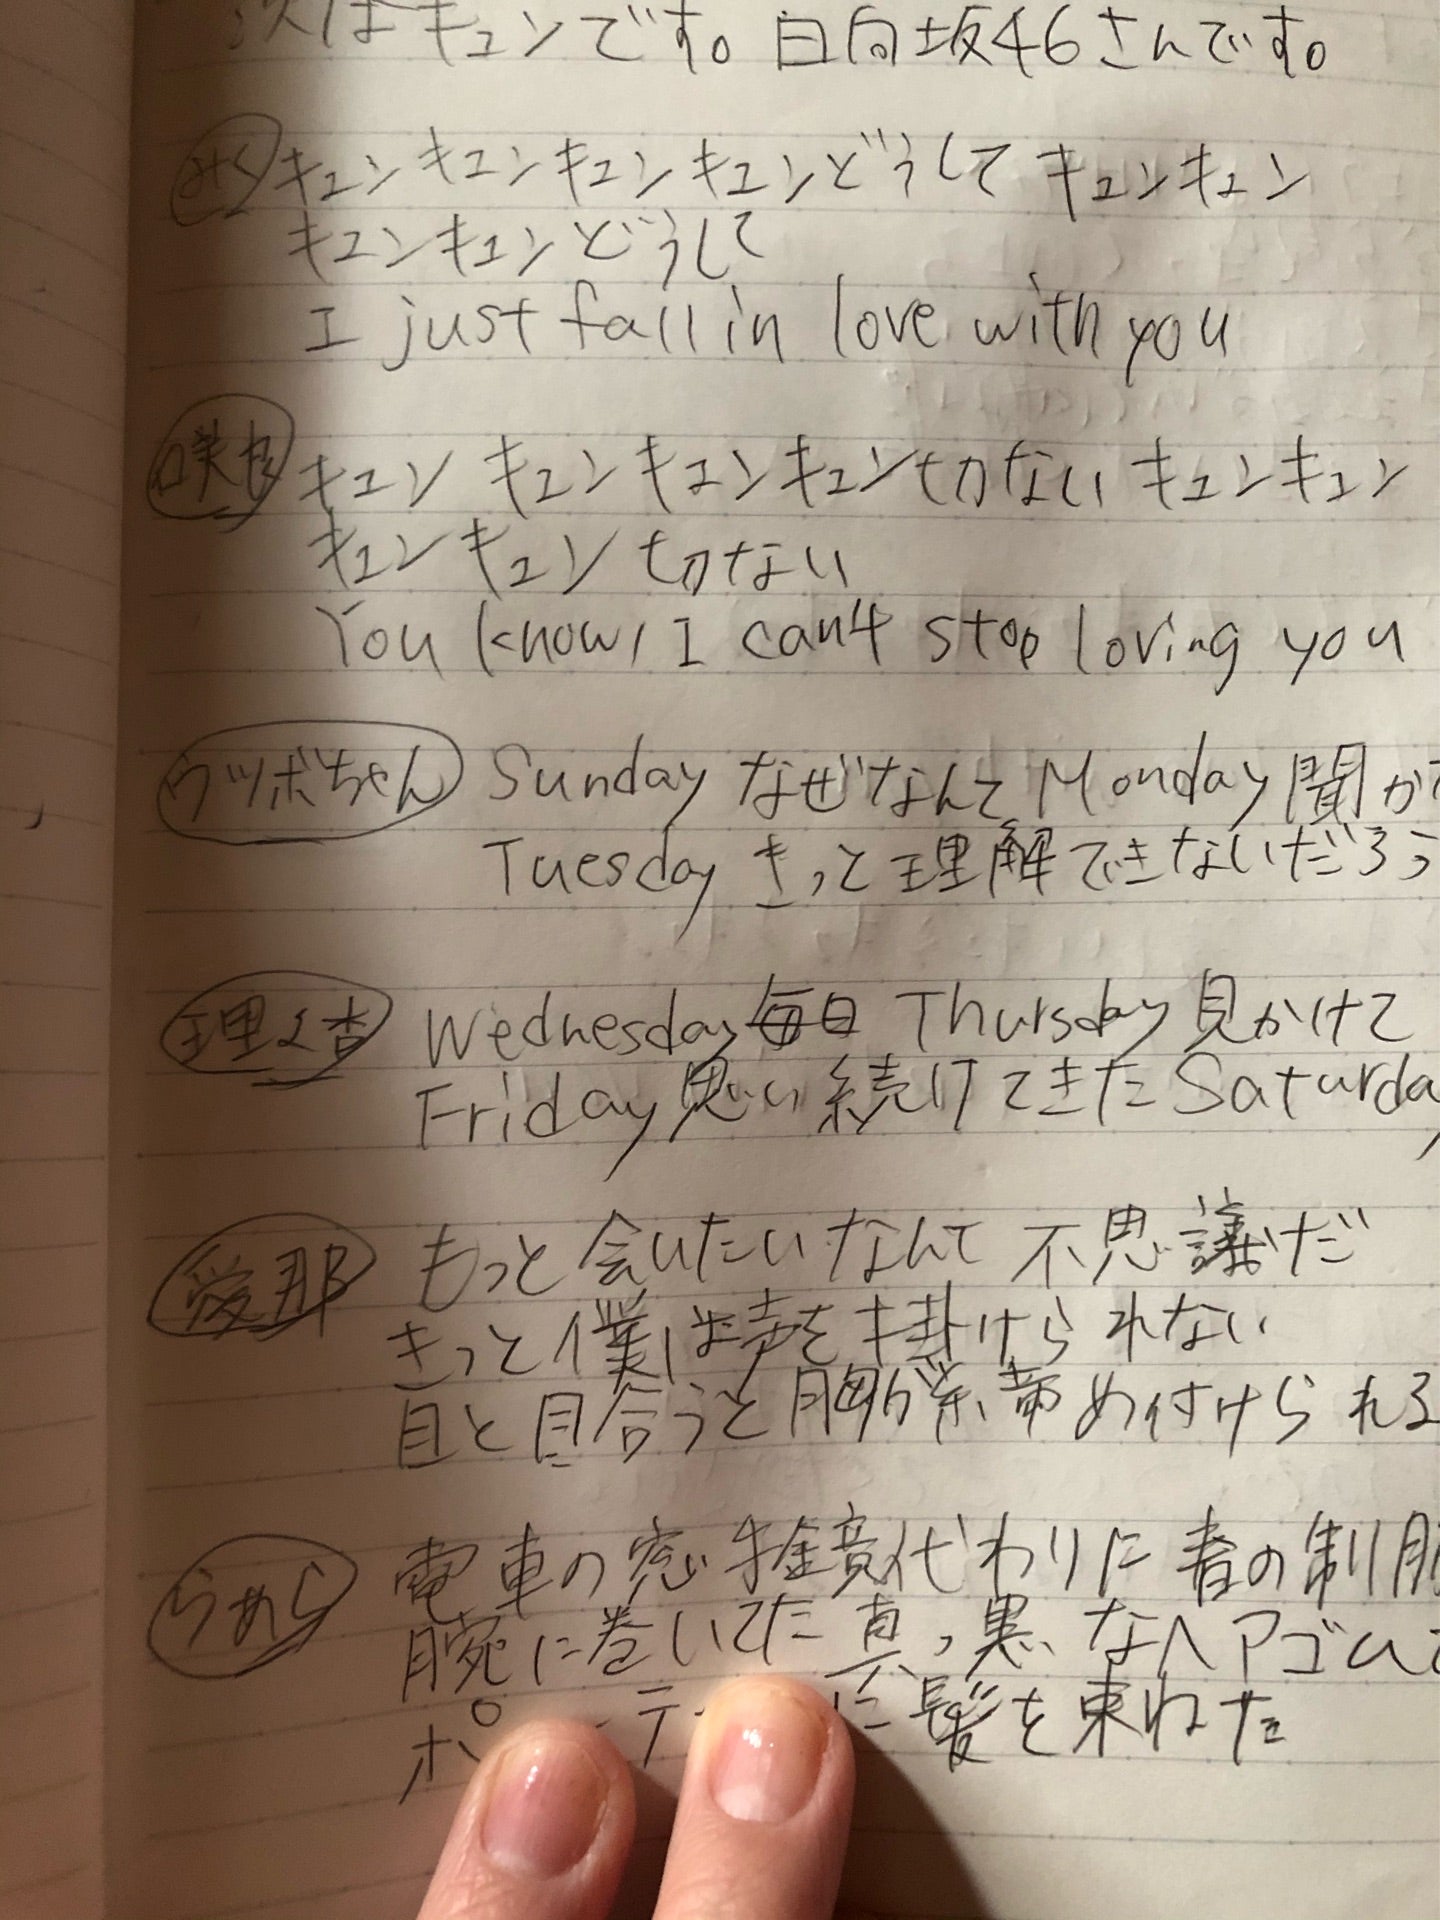 次はキュンです。日向坂46さんです。
みく キュンキュンキュンキュンどうして キュンキュン
キュンキュンどうして
I just fall in love with you
咲良 キュン キュンキュンキュン切ない キュンキュン
キュンキュン 切ない
You know, I can't stop loving you
ウツボちゃん Sunday なぜなんて Monday 聞か
Tuesday きっと理解できないだろう
理々杏 Wednesday 毎日 Thursday 見かけて
Friday 思い続けてきた Saturda
愛那 もっと会いたいなんて 不思議だ
きっと僕は声を掛けられない
目と目合うと胸が締め付けられる
うめら 電車の窓 鏡代わりに 春の制服
腕に巻いてた真っ黒なヘアゴムで
ポ テ に髪を束ねた